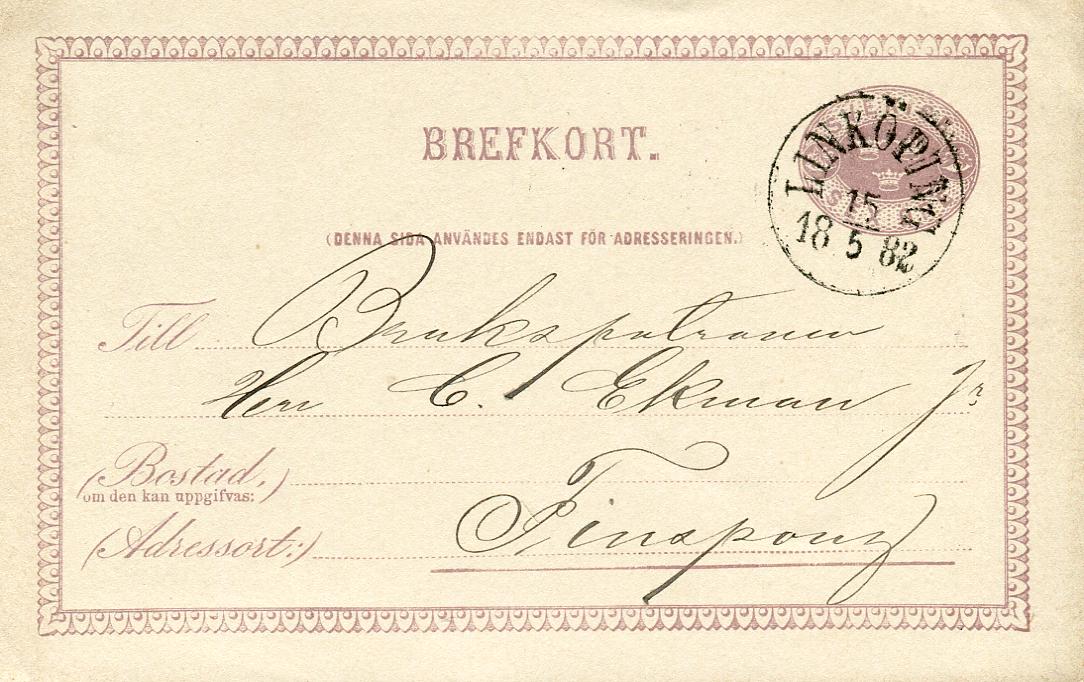 BREFKORT.
SVERIGE
LINKÖPING
15
18 5 82
(DENNA SIDA ANVÄNDES ENDAST FÖR ADRESSERINGEN.)
Till Brukspatronen
Herr C. Ekman Jr
(Bostad,)
om den kan uppgifvas:
(Adressort:) Finspong